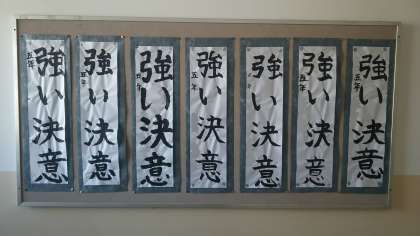 強い決意
五年
強い決意
五年
強い決意
五年
強い決意
五年
強い決意
五年
強い決意
五年
強い決意
五年